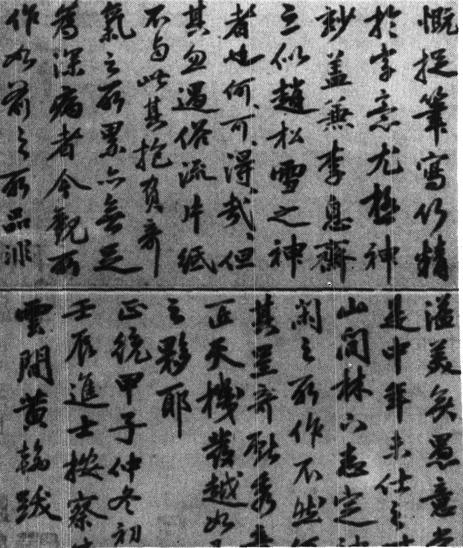 慨捉筆寫竹精
於字意尤極神
妙蓋兼李息齋
之似趙松雪之神
者也何可得哉但
其忽遇俗流片紙
不與此其抱負奇
氣之所累亦無足
為深病者今觀所
作如前之所品非
溢美矣愚意當
是中年未仕之時
山間林下志定
閑之所作不然
其墨奇秀
匠天機發越如
之夥耶
正統甲子仲冬初
壬辰進士按察
雲間黃翰跋